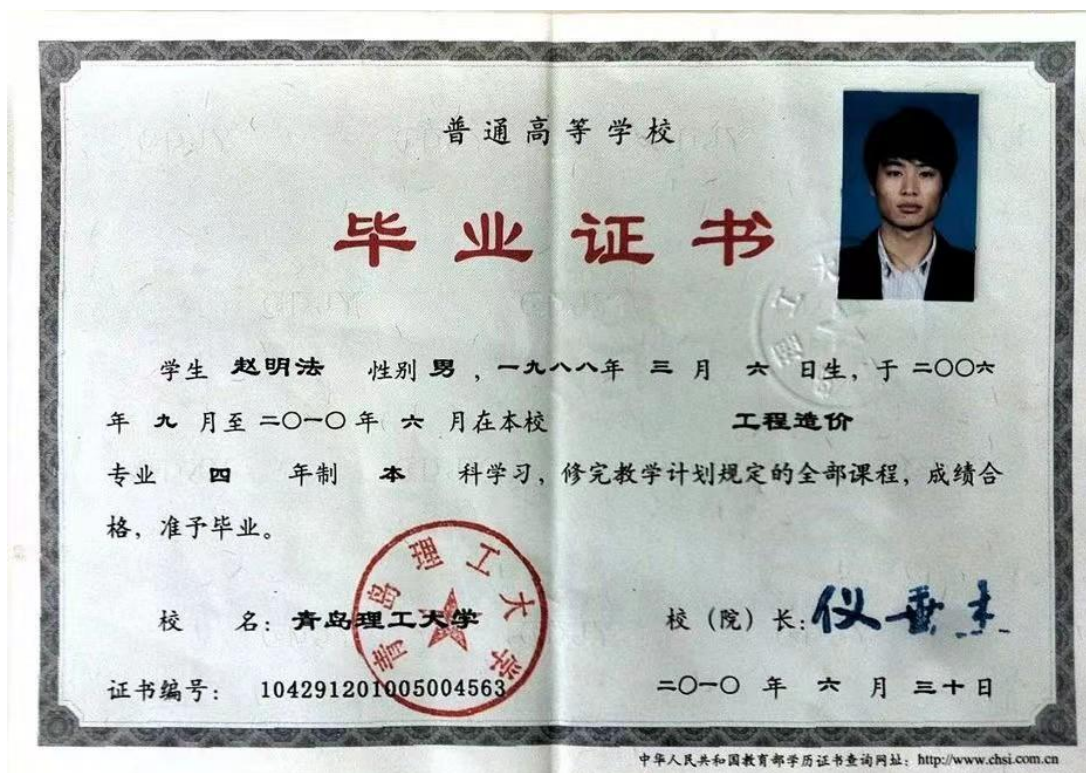 普通高等学校
毕业证书
学生 赵明法 性别 男 ，一九八八年 三 月 六 日生，于 二〇〇六
年 九 月至 二〇一〇 年 六 月在本校 工程造价
专业 四 年制 本 科学习，修完教学计划规定的全部课程，成绩合
格，准予毕业。
青岛理工大学
校 名：青岛理工大学
校（院）长：仪垂杰
证书编号： 104291201005004563
二〇一〇 年 六 月 三十日
中华人民共和国教育部学历证书查询网址：http://www.chsi.com.cn